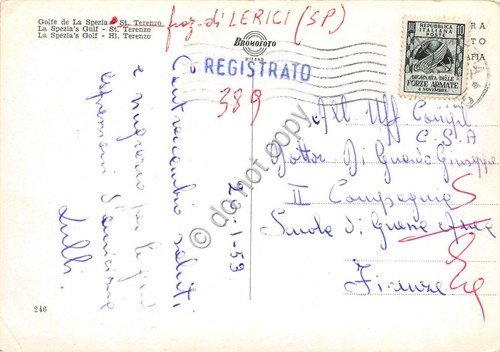 Golfe de La Spezia - St. Terenzo
La Spezia's Gulf - St. Terenzo
La Spezia's Golf - Hl. Terenzo
fraz. di LERICI (SP)
BROMOFOTO
MILANO
REGISTRATO
389
REPUBBLICA
ITALIANA
10
GIORNATA DELLE
FORZE ARMATE
4 NOVEMBRE
Contraccambio saluti
e ringrazio per le
espressioni d'amicizia
Lulli
29-1-59
All Uff
C.S.A
Dottor Di Guardo Giuseppe
II Compagnia S
Scuola di Guerra
Firenze
246
do not copy